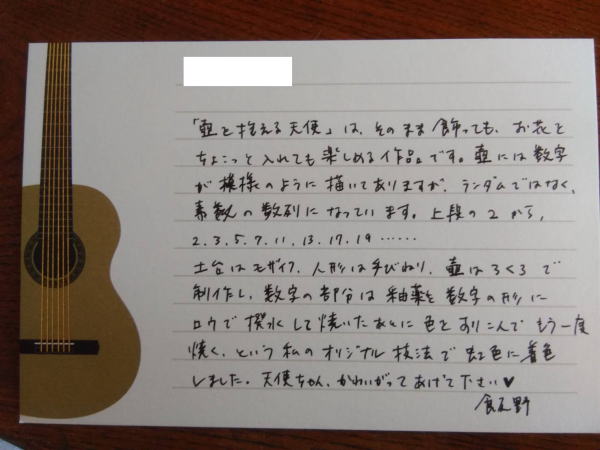 「壷を抱える天使」は、そのまま飾っても、お花を
ちょこっと入れても楽しめる作品です。壷には数字
が模様のように描いてありますが、ランダムではなく、
素数の数列になっています。上段の2から、
2.3.5.7.11.13.17.19……
土台はモザイク、人形は手びねり、壷はろくろで
制作し、数字の部分は釉薬を数字の形に
ロウで撥水して焼いたあとに色をすりこんでもう一度
焼く、という私のオリジナル技法で虹色に着色
しました。天使ちゃん、かわいがってあげて下さい♥